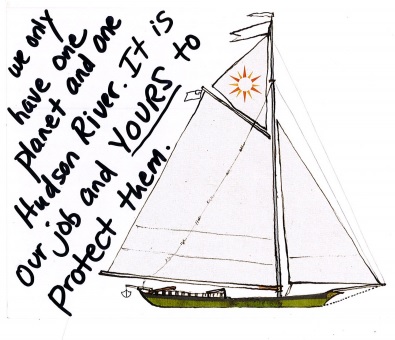 we only
have one
planet and one
Hudson River. It is
Our job and YOURS to
Protect them.